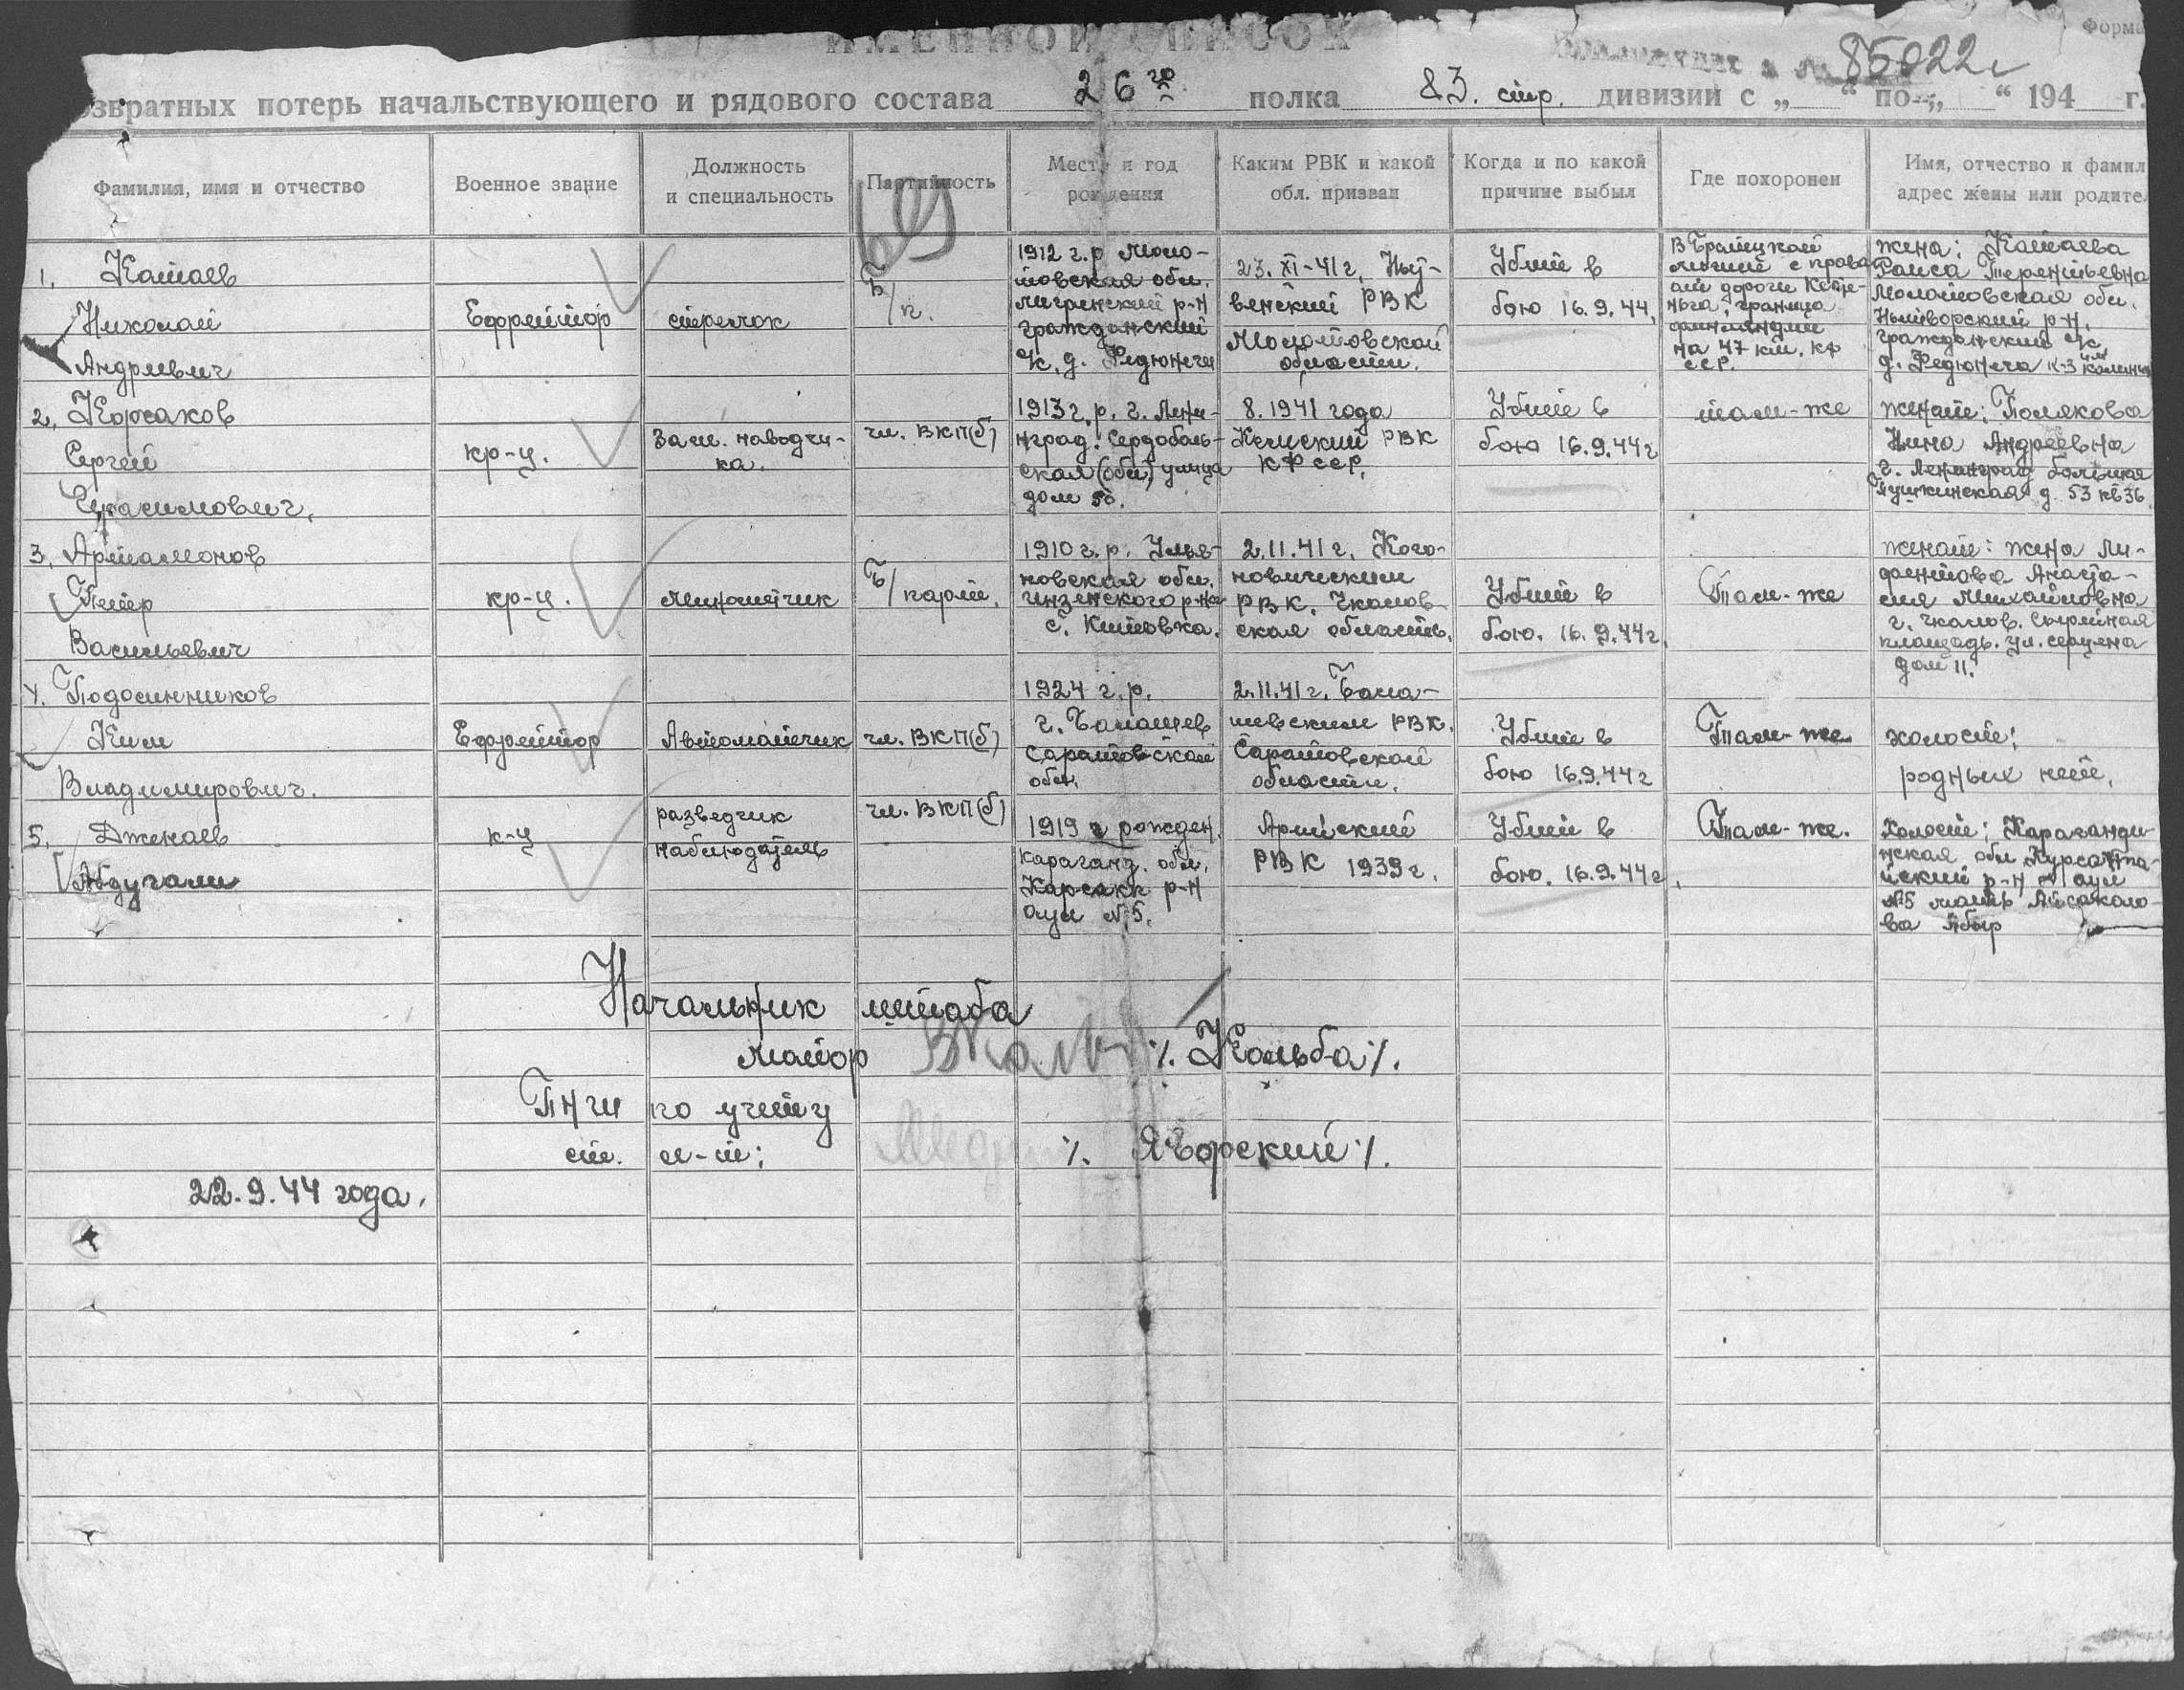 ИМЕННОЙ СПИСОК
Форма
85022с
возвратных потерь начальствующего и рядового состава 26го полка 83. стр. дивизии с „ “ по „ “ 194 г.
Фамилия, имя и отчество
Военное звание
Должность
и специальность
Партийность
Место и год
рождения
Каким РВК и какой
обл. призван
Когда и по какой
причине выбыл
Где похоронен
Имя, отчество и фамил
адрес жены или родител
1. Катаев
Николай
Андреевич
Ефрейтор
стрелок
Б/п.
1912 г.р. Моло-
товская обл.
район р-н
гражданский
с/с, д. Федюнечи
23. XI-41 г. Ныт-
венский РВК
Молотовской
области.
Убит в
бою 16.9.44.
В Братской
могиле с права
от дороги Кесте-
ньга, граница
финляндии
на 47 км. КФ
ССР.
жена: Катаева
Раиса Терентьевна
Молотовская обл.
р-н.
гражданский с/с
д. Федюнеча к-з им Калинин
2. Корсаков
Сергей
Герасимович.
кр-ц.
Зам. наводчи-
ка.
чл. ВКП(б)
1913 г.р. г. Лени-
нград. Сердоболь-
ская (обл) улица
дом 50.
8. 1941 года
Кемский РВК
КФССР.
Убит в
бою 16.9.44 г
там-же
женат: Полякова
Нина Андреевна
г. Ленинград большая
Пушкинская д. 53 кв 36.
3. Артамонов
Петр
Васильевич
кр-ц.
минометчик
Б/парт.
1910 г.р. Улья-
новская обл.
инзенского р-на
с. Китовка.
2.11.41 г. Кага-
новическим
РВК. Чкалов-
ская область.
Убит в
бою. 16.9.44 г.
Там-же
женат: жена Ли-
фентова Анаста-
сия Михайловна
г. Чкалов.
площадь. ул.
дом 11.
4. Подосинников
Ким
Владимирович.
Ефрейтор
Автоматчик
чл. ВКП(б)
1924 г.р.
г. Балашев
Саратовской
обл.
2.11.41 г. Бала-
шевским РВК.
Саратовской
области.
Убит в
бою 16.9.44 г
Там-же
холост;
родных нет.
5. Дженаев
Абдугали
к-ц
разведчик
наблюдатель
чл. ВКП(б)
1919 г рожден.
Караганд. обл.
р-н
аул №5.
РВК 1939 г.
Убит в
бою. 16.9.44 г.
Там-же.
Холост; Караганди-
нская обл
р-н аул
№5 мать Айсаколо-
ва Ябыр
Начальник штаба
майор ./. Кольба ./.
ПНШ по учету
ст. л-т: ./. Яворский ./.
22.9.44 года.